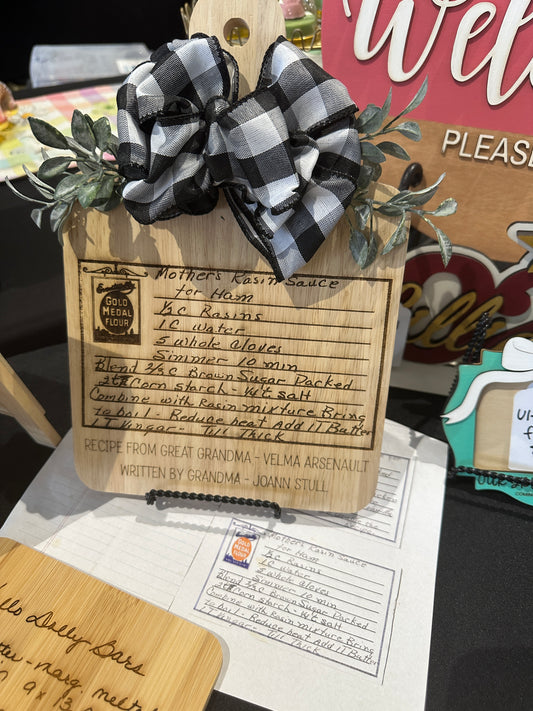 Wel
PLEAS
Mother's Rasin Sauce
for Ham
GOLD
MEDAL
FLOUR
½ C Rasins
1 C water
5 whole cloves
Simmer 10 min
Blend ⅔ C Brown Sugar Packed
Corn starch - ¼ t salt
Combine with Rasin mixture Bring
to boil - Reduce heat Add 1 T Butter
1 T Vingar - Till Thick
RECIPE FROM GREAT GRANDMA - VELMA ARSENAULT
WRITTEN BY GRANDMA - JOANN STULL
Mother's Rasin Sauce
for Ham
GOLD
MEDAL
FLOUR
½ C Rasins
1 C water
5 whole cloves
Simmer 10 min
Blend ⅔ C Brown Sugar Packed
Corn starch - ¼ t salt
Combine with Rasin mixture Bring
to boil - Reduce heat Add 1 T Butter
1 T Vingar - Till Thick
llo Dolly Bars
tter - marg. melt
9 x 13